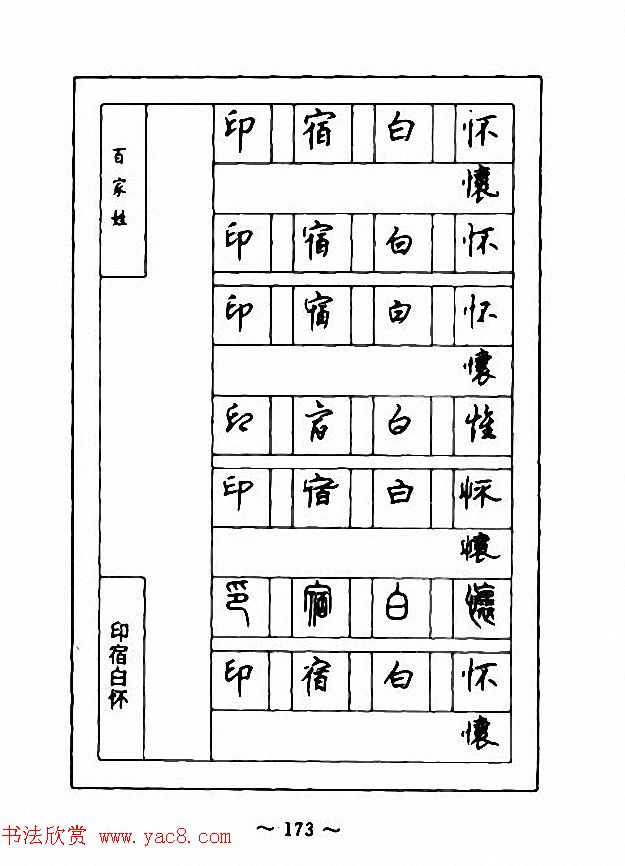 百家姓
印 宿 白 怀
懷
印 宿 白 怀
印 宿 白 怀
懷
印 宿 白 怀
印 宿 白 怀
懷
印 宿 白 懷
印 宿 白 怀
懷
印宿白怀
～ 173 ～
书法欣赏 www.yac8.com